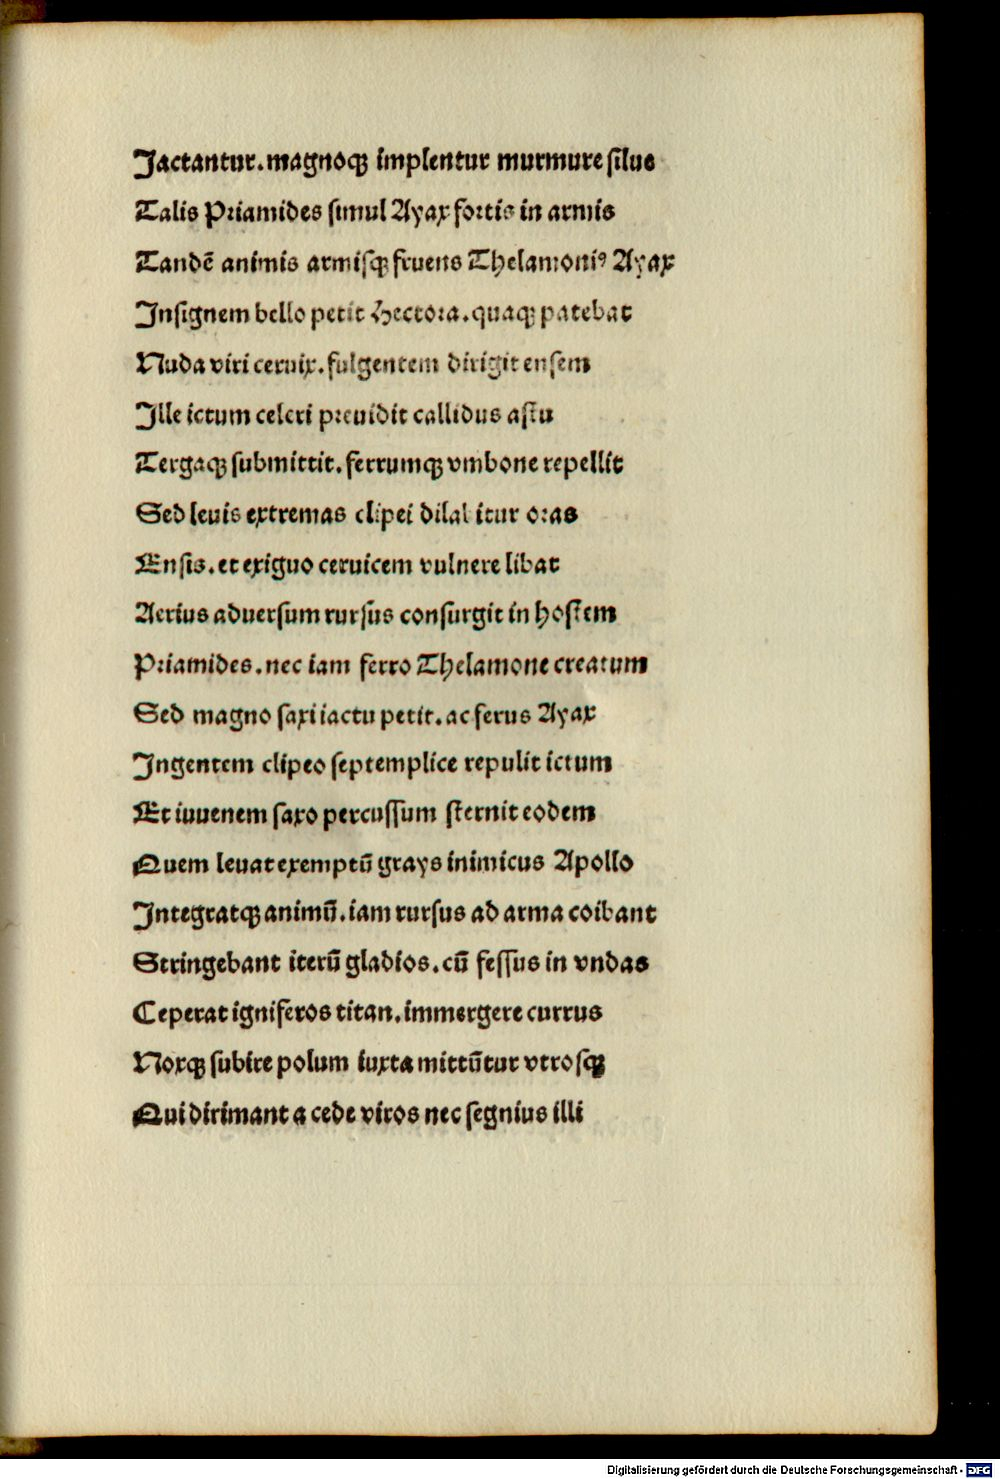 Jactantur.magnoqꝫ implentur murmure silue
Talis Priamides simul Ayax fortis in armis
Tandē animis armisqꝫ fruens Thelamoniꝰ Ayax
Insignem bello petit Hectora.quaqꝫ patebat
Nuda viri ceruix.fulgentem dirigit ensem
Ille ictum celeri preuidit callidus astu
Tergaqꝫ submittit.ferrumqꝫ vmbone repellit
Sed leuis extremas clipei dilabitur oras
Ensis.et exiguo ceruicem vulnere libat
Acrius aduersum rursus consurgit in hostem
Priamides.nec iam ferro Thelamone creatum
Sed magno saxi iactu petit.ac ferus Ayax
Ingentem clipeo septemplice repulit ictum
Et iuuenem saxo percussum sternit eodem
Quem leuat exemptū grays inimicus Apollo
Integratqꝫ animū.iam rursus ad arma coibant
Stringebant iterū gladios.cū fessus in vndas
Ceperat igniferos titan.immergere currus
Noxqꝫ subire polum iuxta mittūtur vtrosqꝫ
Qui dirimant a cede viros nec segnius illi
Digitalisierung gefördert durch die Deutsche Forschungsgemeinschaft - DFG